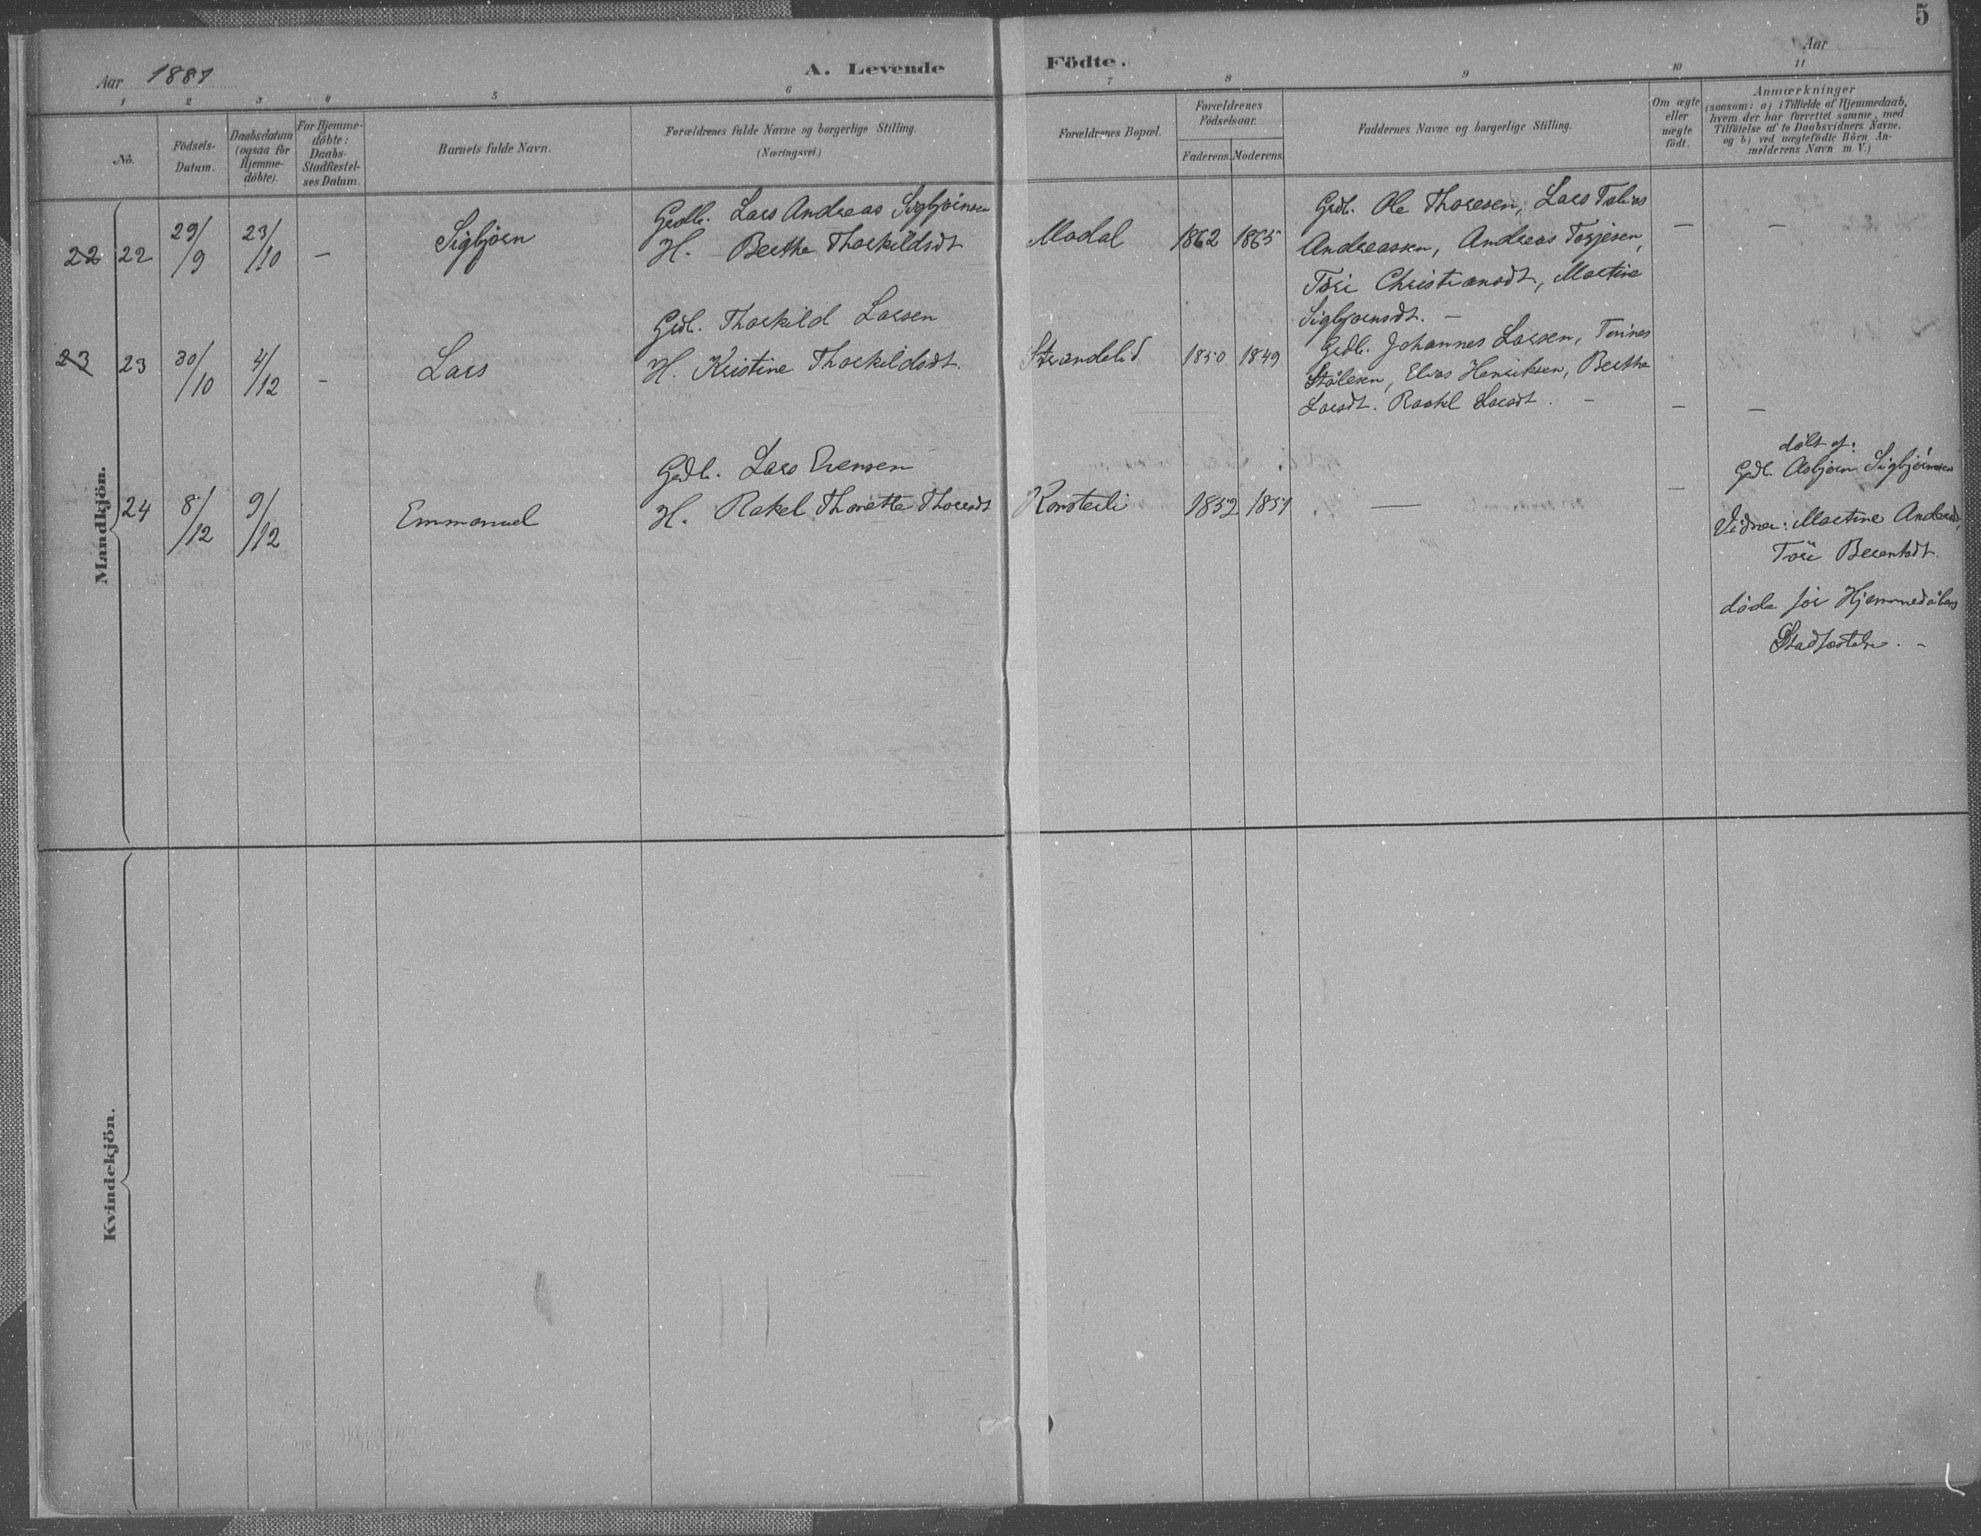 5
Aar 1887
A. Levende Födte.
Aar
1 2 3 4 5 6 7 8 9 10 11
No.
Födsels-Datum.
Daabsdatum (ogsaa for Hjemme-döbte).
For Hjemme-döbte: Daabs-Stadfæstel-ses Datum.
Barnets fulde Navn.
Forældrenes fulde Navne og borgerlige Stilling. (Næringsvei.)
Forældrenes Bopæl.
Forældrenes Födselsaar.
Faderens. Moderens.
Faddernes Navne og borgerlige Stilling.
Om ægte eller uægte födt.
Anmærkninger
(saasom: a) i Tilfælde af Hjemmedaab,
hvem der har forrettet samme, med
Tilföielse af to Daabsvidners Navne.
og b) ved uægtefödte Börn An-
melderens Navn m. V.)
Mandkjön.
22 22 29/9 23/10 — Sigbjörn
Grdb. Lars Andreas Sigbjörnsen
H. Berthe Thorkildsdt
Modal 1862 1865
Grdb. Ole Thoresen, Lars Tobias
Andreassen, Andreas Torjesen,
Tori Christiansdt, Martine
Sigbjörnsdt. —
— —
23 23 30/10 4/12 — Lars
Grdb. Thorkild Larsen
H. Kristine Thorkildsdt.
Strandelid 1850 1849
Grdb. Johannes Larsen, Tönnes
Stålesen, Elias Henriksen, Berthe
Larsdt. Rakel Larsdt. —
— —
24 8/12 9/12 Emmanuel
Grdb. Lars Evensen
H. Rakel Thonette Thorsdt
Konsteli 1852 1851
— —
döbt af:
Grdb. Asbjörn Sigbjörnsen
Vidner: Martine Andersdt,
Tori Berentsdt.
döde för Hjemmedåbens
Stadfæstelse. —
Kvindekjön.